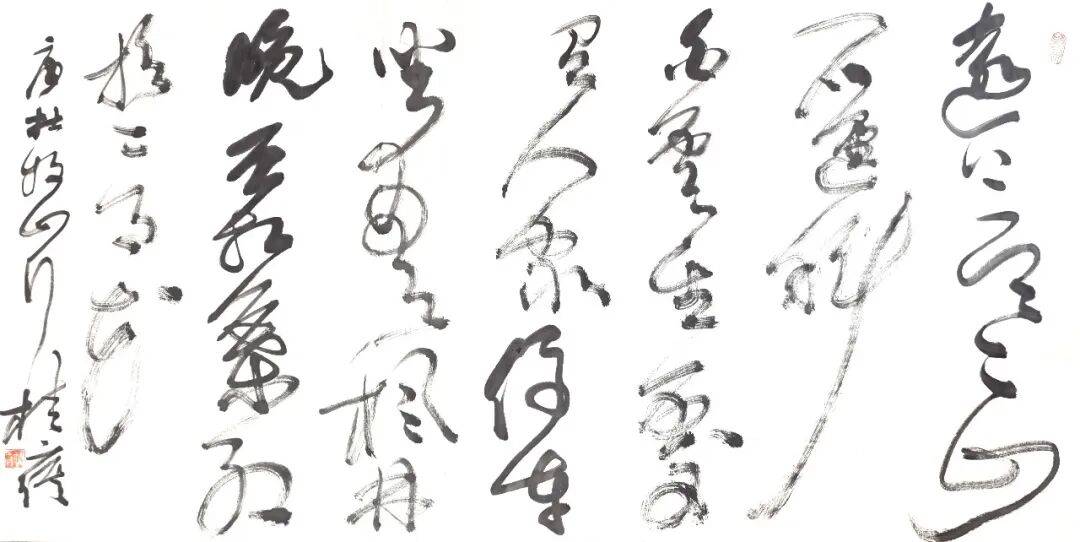 遠上寒山
石逕斜
白雲生處
有人家停車
坐愛楓林
晚霜葉紅
於二月花
唐杜牧山行 桂